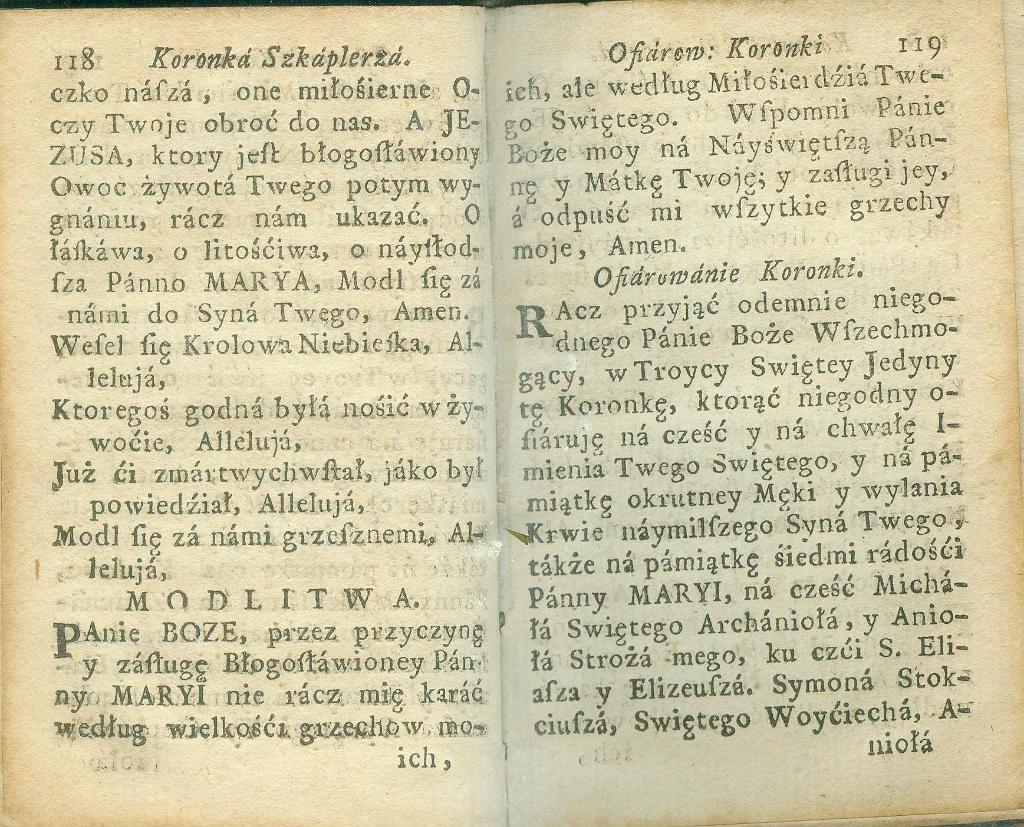 118 Koronká Szkáplerzá.
czko náſzá, one miłośierne O-
czy Twoje obroć do nas. A JE-
ZUSA, ktory jeſt błogoſłáwiony
Owoc żywotá Twego potym wy-
gnániu, rácz nám ukazać. O
łáſkáwa, o litośćiwa, o náyſłod-
ſza Pánno MARYA, Modl ſię zá
námi do Syná Twęgo, Amen.
Weſel ſię Krolowa Niebieſka, Al-
lelujá,
Ktoregoś godná byłá nośić w ży-
woćie, Allelujá,
Już ći zmártwychwſtał, jáko był
powiedźiał, Allelujá,
Modl ſię zá námi grzeſznemi, Al-
lelujá,
MODLITWA.
PAnie BOZE, przez przyczynę
y záſługę Błogoſłáwioney Pán-
ny MARYI nie rácz mię karáć
według wielkośći grzechow mo-
ich,
Ofiárow: Koronki 119
ich, ale według Miłośierdźiá Twe-
go Swiętego. Wſpomni Pánie
Boże moy ná Náyświętſzą Pán-
nę y Mátkę Twoję; y zaſługi jey,
á odpuść mi wſzytkie grzechy
moje, Amen.
Ofiárowánie Koronki.
RAcz przyjąć odemnie niego-
dnego Pánie Boże Wſzechmo-
gący, w Troycy Swiętey Jedyny
tę Koronkę, ktorąć niegodny o-
fiáruję ná cześć y ná chwałę I-
mienia Twego Swiętego, y ná pá-
miątkę okrutney Męki y wylania
Krwie náymilſzego Syná Twego,
tákże ná pámiątkę śiedmi rádośći
Pánny MARYI, ná cześć Michá-
łá Swiętego Archániołá, y Anio-
łá Strożá mego, ku czći S. Eli-
aſza y Elizeuſzá. Symoná Stok-
ciuſzá, Swiętego Woyćiechá, A-
niołá